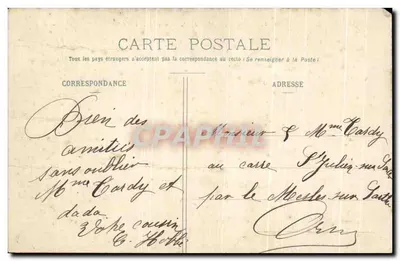 CARTE POSTALE
Tous les pays étrangers n'acceptent pas la correspondance au recto (Se renseigner à la Poste)
CORRESPONDANCE
ADRESSE
Bien des
amitiés
sans oublier
Mme Tardy et
dada
Votre cousin
Monsieur & Mme Tardy
au carre St Julien sur Sarthe
par le Mesle sur Sarthe
Orne
PRCards.com